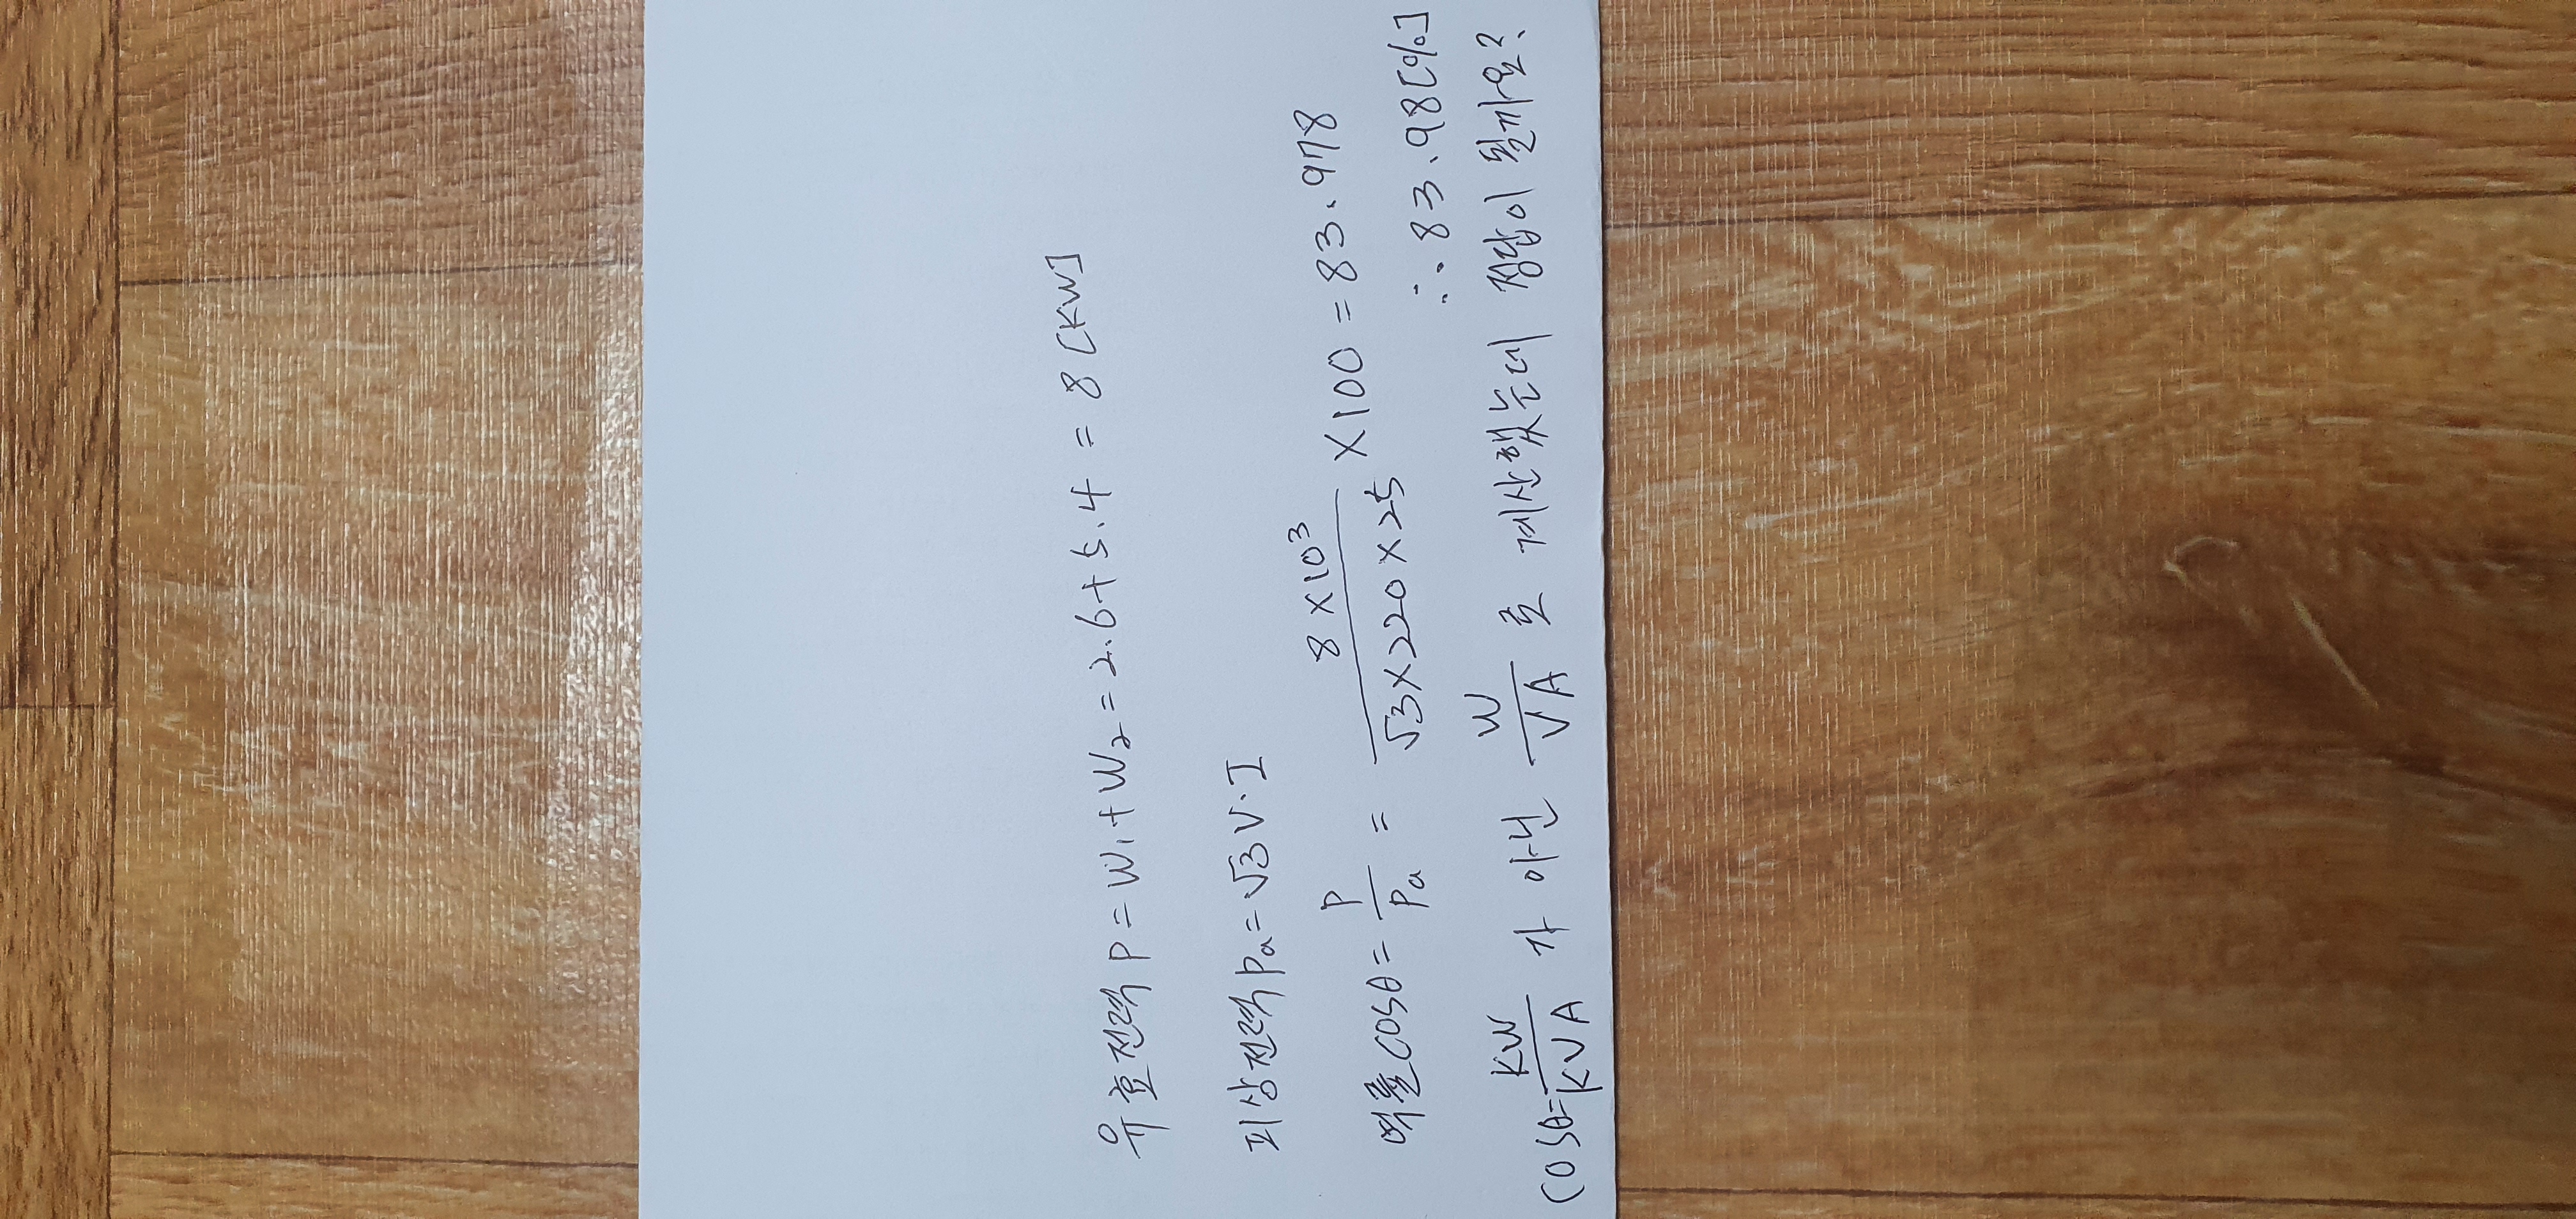 유효전력 P = W₁ + W₂ = 2.6 + 5.4 = 8 [KW]
피상전력 Pa = √3 V·I
역률 cosθ = P/Pa = 8×10³/√3×220×25 ×100 = 83.978
∴ 83.98[%]
cosθ = KW/KVA 가 아닌 W/VA 로 계산했는데 정답이 될까요?